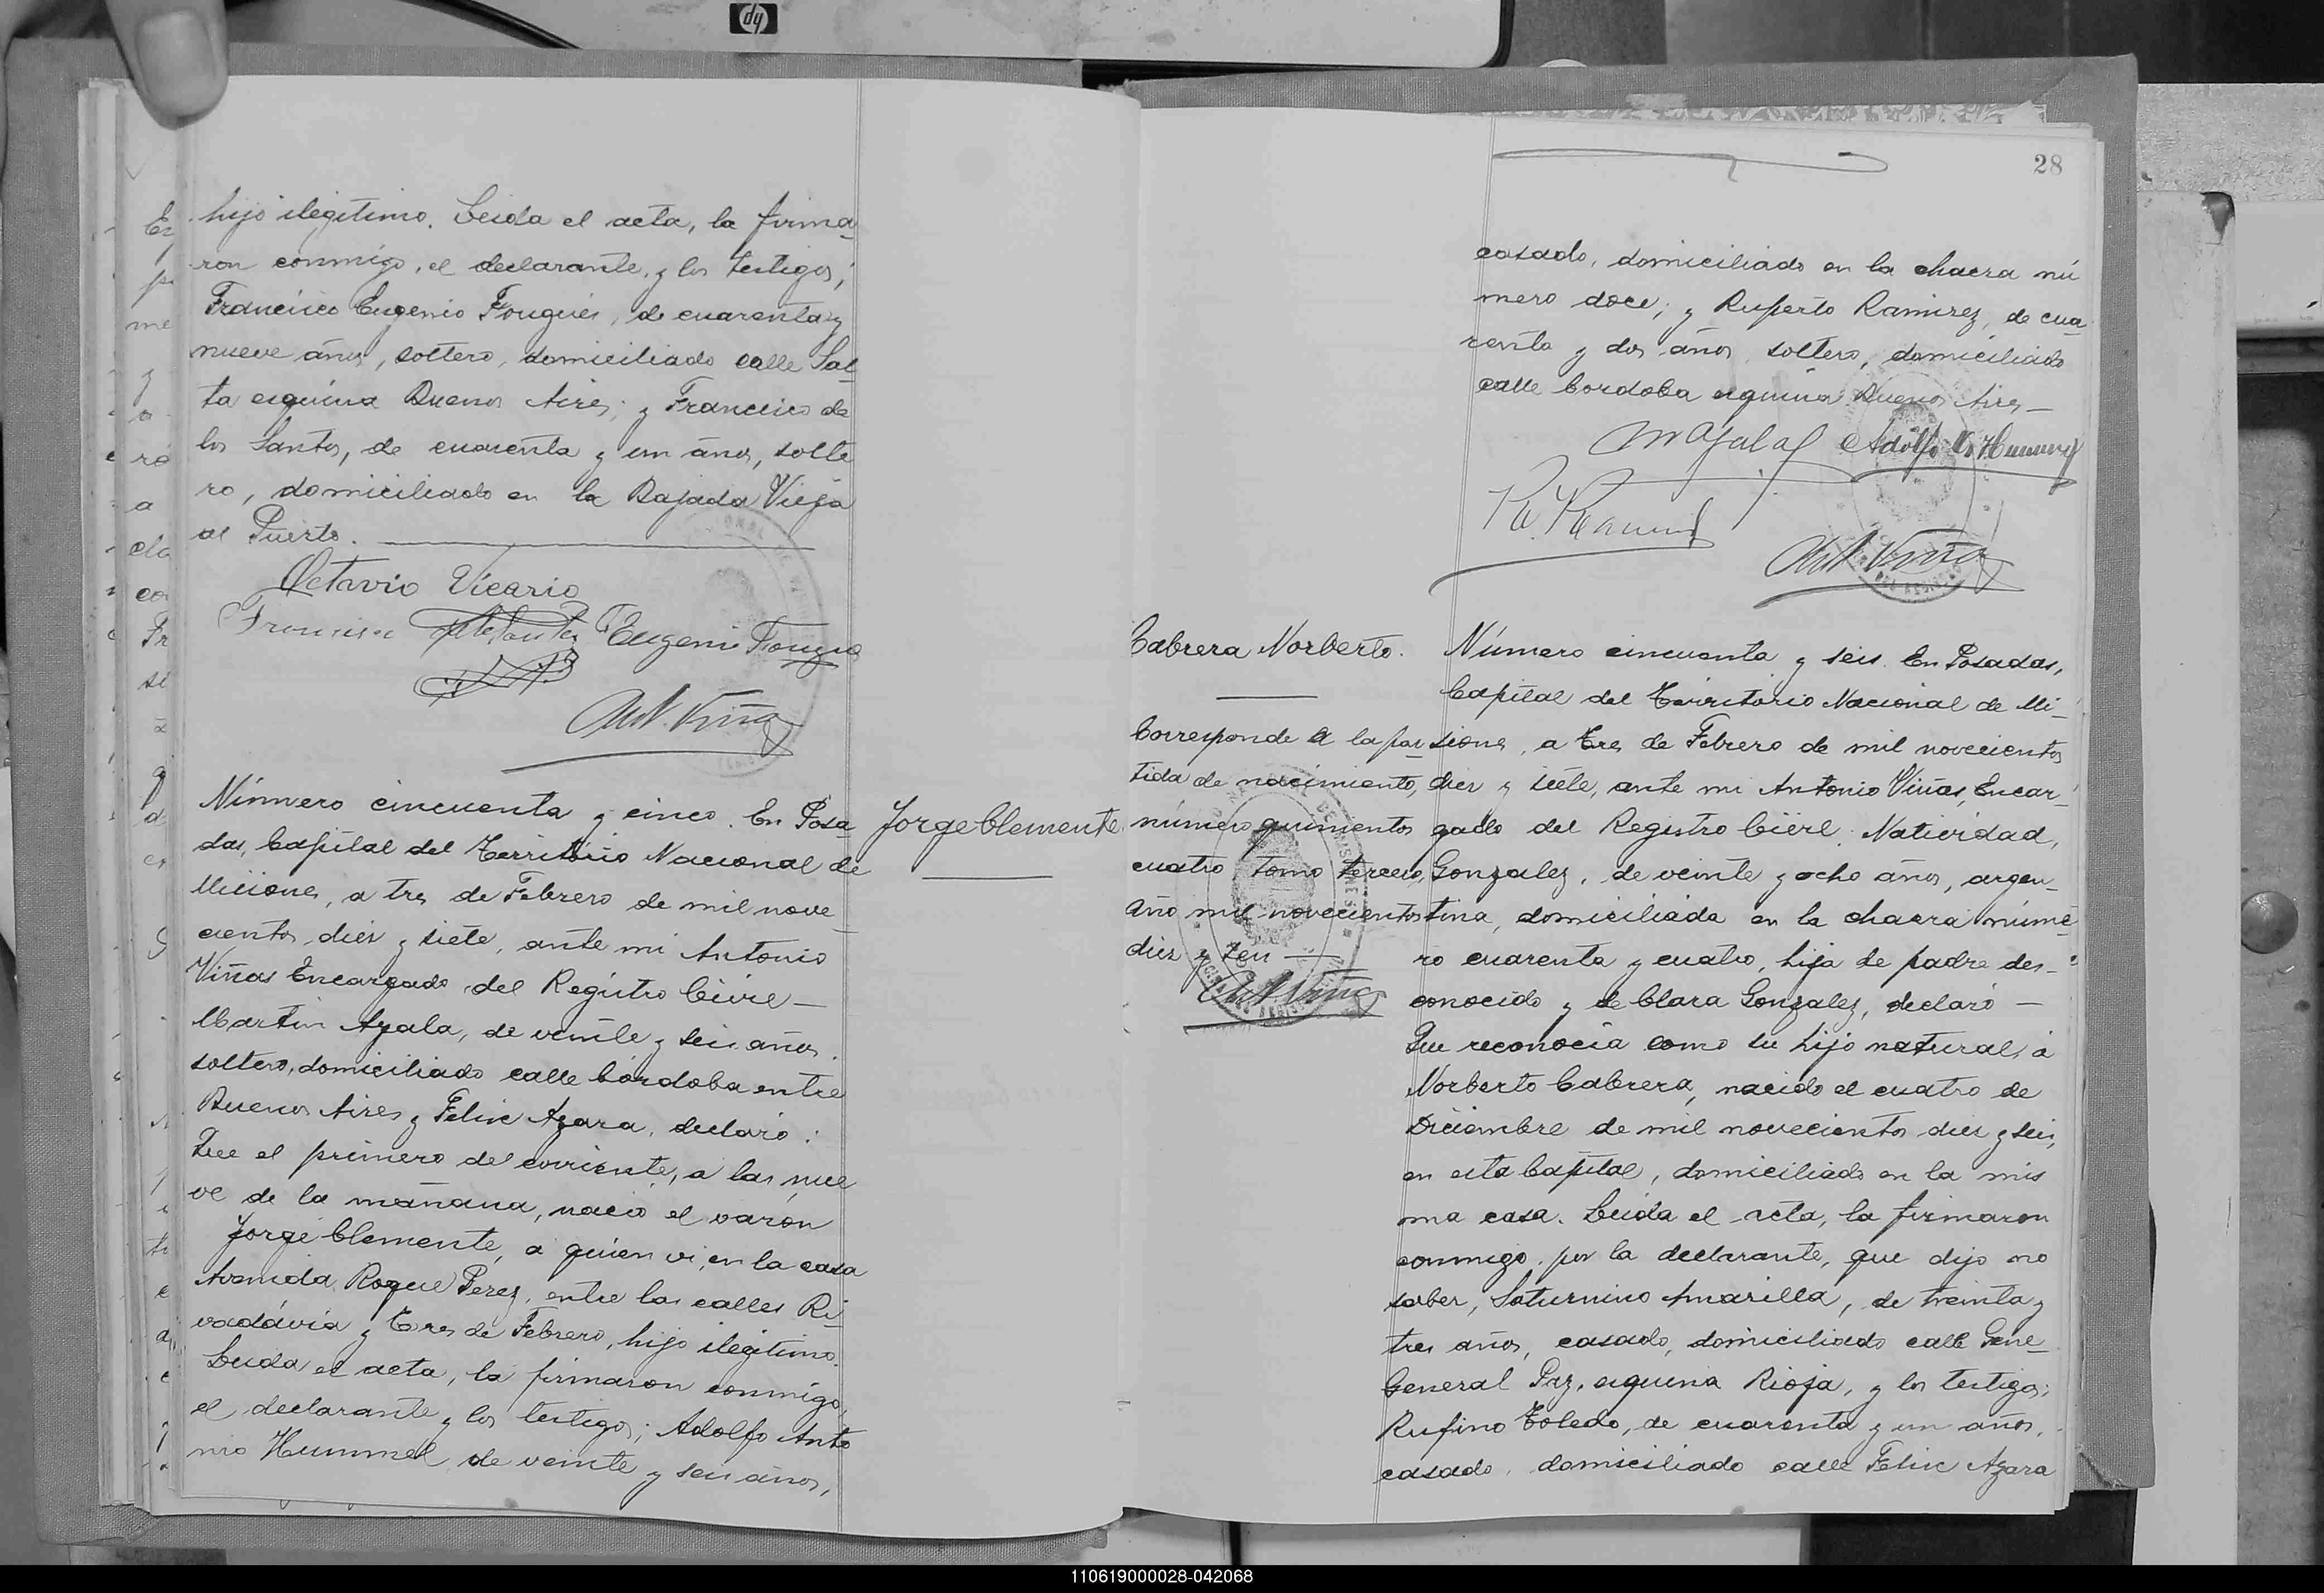 hp
hijo ilegitimo. Leida el acta, la firma
ron conmigo, el declarante, y los testigos;
Francisco Eugenio Fouguies, de cuarenta y
nueve años, soltero, domiciliado calle Sal
ta esquina Buenos Aires; y Francisco de
los Santos, de cuarenta y un años, solte
ro, domiciliado en la Bajada Vieja
al Puerto.
Octavio Vicario
Francisco Eugenio
Ant. Viñas
Número cincuenta y cinco. En Posa
das, Capital del Territorio Nacional de
Misiones, a tres de Febrero de mil nove
cientos diez y siete, ante mi Antonio
Viñas Encargado del Registro Civil—
Martin Ayala, de veinte y seis años
soltero, domiciliado calle Córdoba entre
Buenos Aires y Felix Azara, declaró:
Que el primero del corriente, a las nue
ve de la mañana, nació el varon
Jorge Clemente, a quien vi, en la casa
Avenida Roque Perez, entre las calles Ri
vadávia y Tres de Febrero, hijo ilegitimo.
Leida el acta, la firmaron conmigo,
el declarante y los testigos; Adolfo Anto
nio Hummel de veinte y seis años,
Jorge Clemente
28
casado, domiciliado en la chacra nú
mero doce; y Ruperto Ramirez, de cua
renta y dos años, soltero, domiciliado
calle Cordoba esquina Buenos Aires—
M Ayala Adolfo A. Hummel
R. Ramirez
Ant. Viñas
Cabrera Norberto.
Corresponde a la par
tida de nacimiento,
número quinientos
cuatro tomo tercero,
año mil novecientos
diez y seis—
Ant. Viñas
Número cincuenta y seis. En Posadas,
Capital del Territorio Nacional de Mi-
siones, a tres de Febrero de mil novecientos
diez y siete, ante mi Antonio Viñas, Encar-
gado del Registro Civil, Natividad,
Gonzalez, de veinte y ocho años, argen-
tina, domiciliada en la chacra núme-
ro cuarenta y cuatro, hija de padre des-
conocido y de Clara Gonzalez, declaró—
Que reconocia como su hijo natural, á
Norberto Cabrera, nacido el cuatro de
Diciembre de mil novecientos diez y seis,
en esta Capital, domiciliado en la mis
ma casa. Leida el acta, la firmaron
conmigo, por la declarante, que dijo no
saber, Saturnino Amarilla, de treinta y
tres años, casado, domiciliado calle Gene-
General Paz, esquina Rioja, y los testigos;
Rufino Toledo, de cuarenta y un años,
casado, domiciliado calle Felix Azara
110619000028-042068